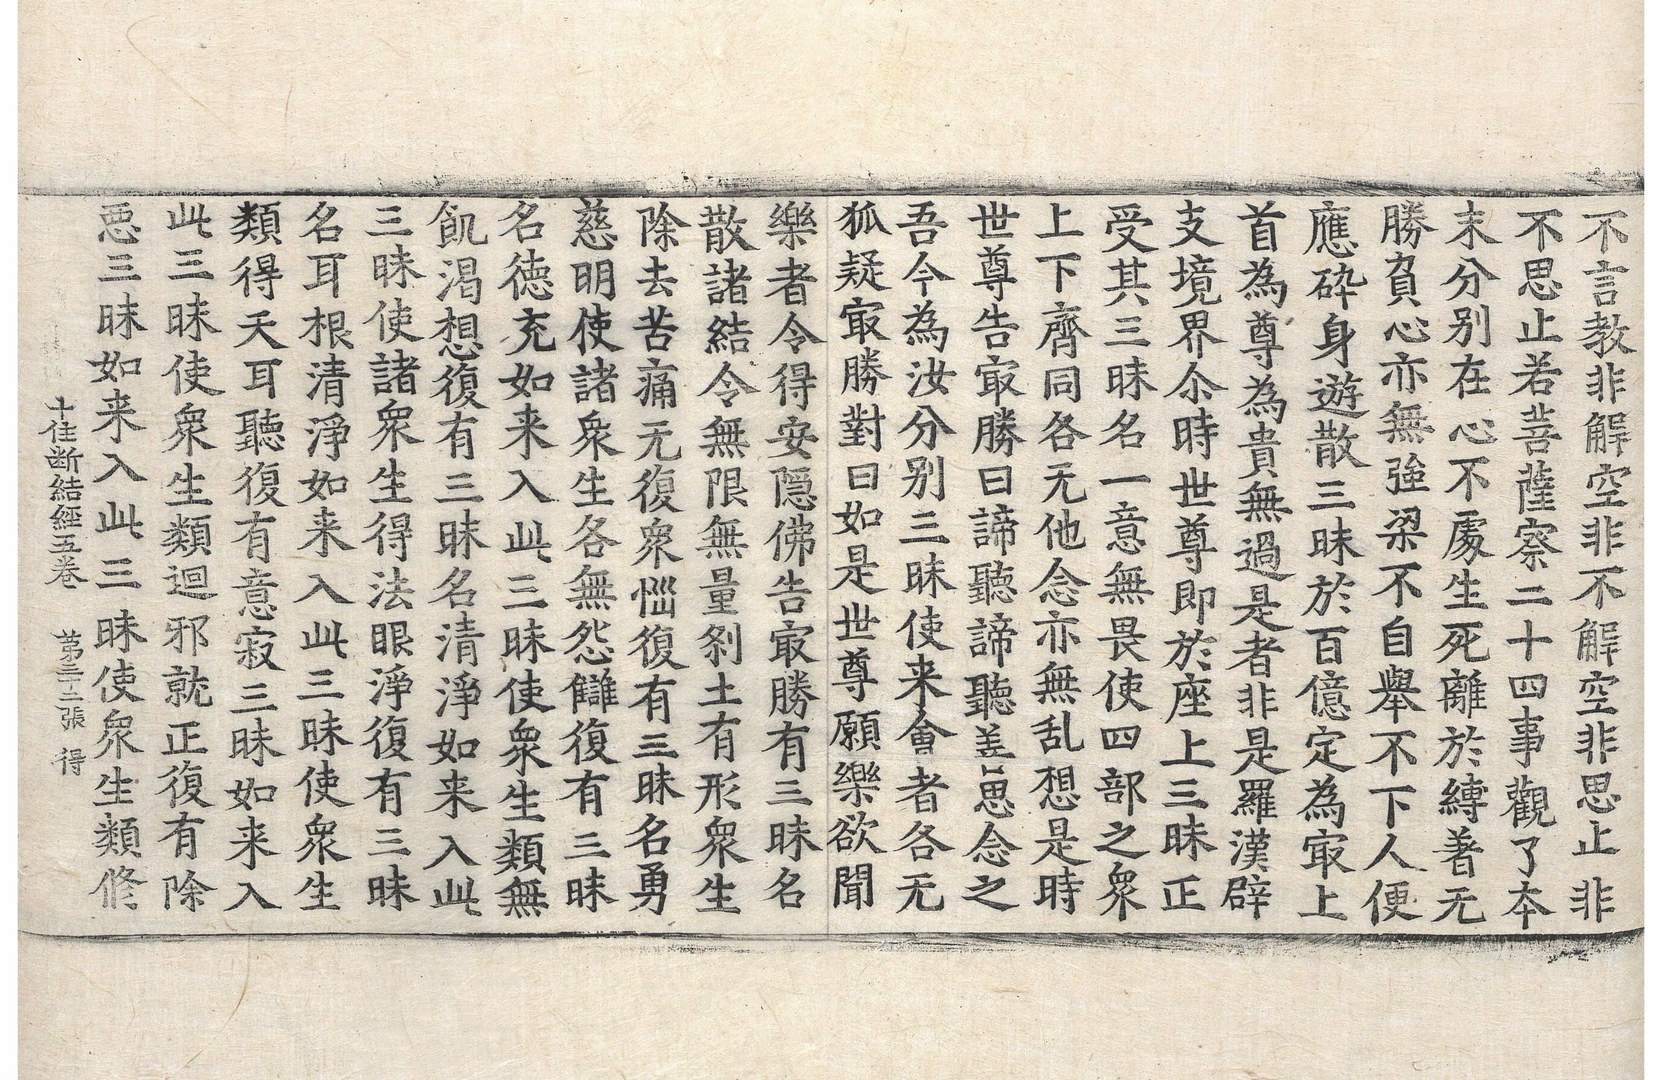 不言教非解空非不解空非思止非
不思止若菩薩察二十四事觀了本
末分别在心不處生死離於縛著无
勝負心亦無強梁不自舉不下人便
應碎身遊散三昧於百億定為㝡上
首為尊為貴無過是者非是羅漢辟
支境界尒時世尊即於座上三昧正
受其三昧名一意無畏使四部之衆
上下齊同各无他念亦無乱想是時
世尊告㝡勝曰諦聽諦聽善思念之
吾今為汝分别三昧使来會者各无
狐疑㝡勝對曰如是世尊願樂欲聞
樂者令得安隠佛告㝡勝有三昧名
散諸結令無限無量剎土有形衆生
除去苦痛无復衆惱復有三昧名勇
慈明使諸衆生各無怨讎復有三昧
名德充如来入此三昧使衆生類無
飢渴想復有三昧名清淨如来入此
三昧使諸衆生得法眼淨復有三昧
名耳根清淨如来入此三昧使衆生
類得天耳聽復有意寂三昧如来入
此三昧使衆生類迴邪就正復有除
惡三昧如来入此三昧使衆生類修
十住断結經五卷 第三二張 得